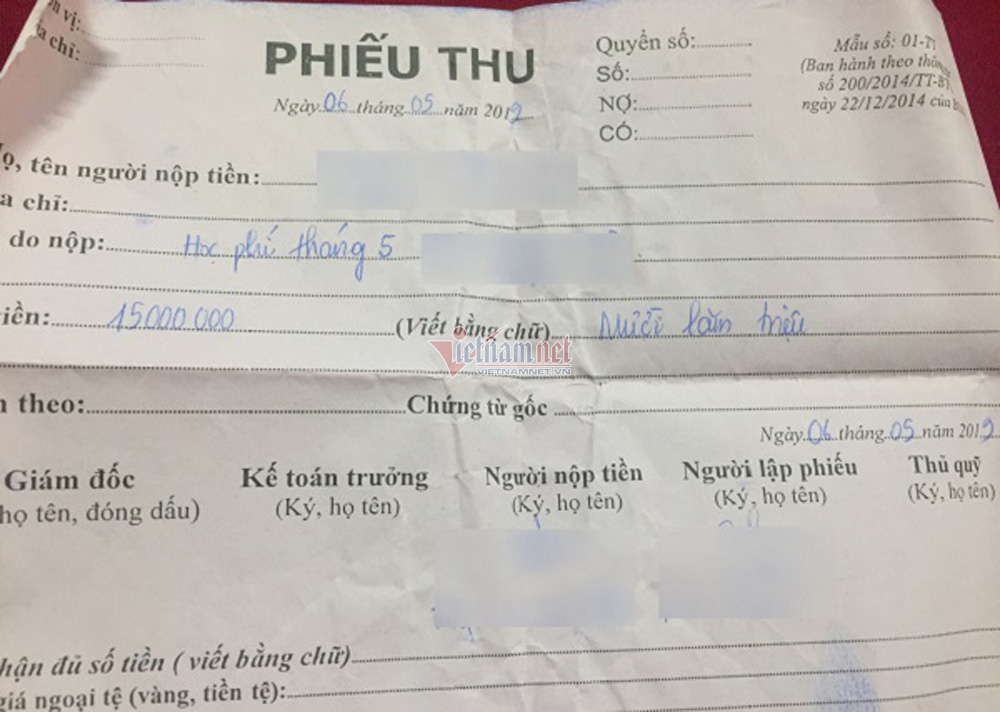 vị:
chỉ:
PHIẾU THU
Ngày 06 tháng 05 năm 2019
Quyển số:
Số:
NỢ:
CÓ:
Mẫu số: 01-T
(Ban hành theo
số 200/2014/TT-B
ngày 22/12/2014 của
ọ, tên người nộp tiền:
a chỉ:
do nộp: Học phí tháng 5
iền: 15.000.000 (Viết bằng chữ) Mười lăm triệu
Vietnamnet
VIETNAMNET.VN
theo: Chứng từ gốc
Ngày 06 tháng 05 năm 2019
Giám đốc Kế toán trưởng Người nộp tiền Người lập phiếu Thủ quỹ
họ tên, đóng dấu) (Ký, họ tên) (Ký, họ tên) (Ký, họ tên) (Ký, họ tên)
hận đủ số tiền ( viết bằng chữ)
giá ngoại tệ (vàng, tiền tệ):